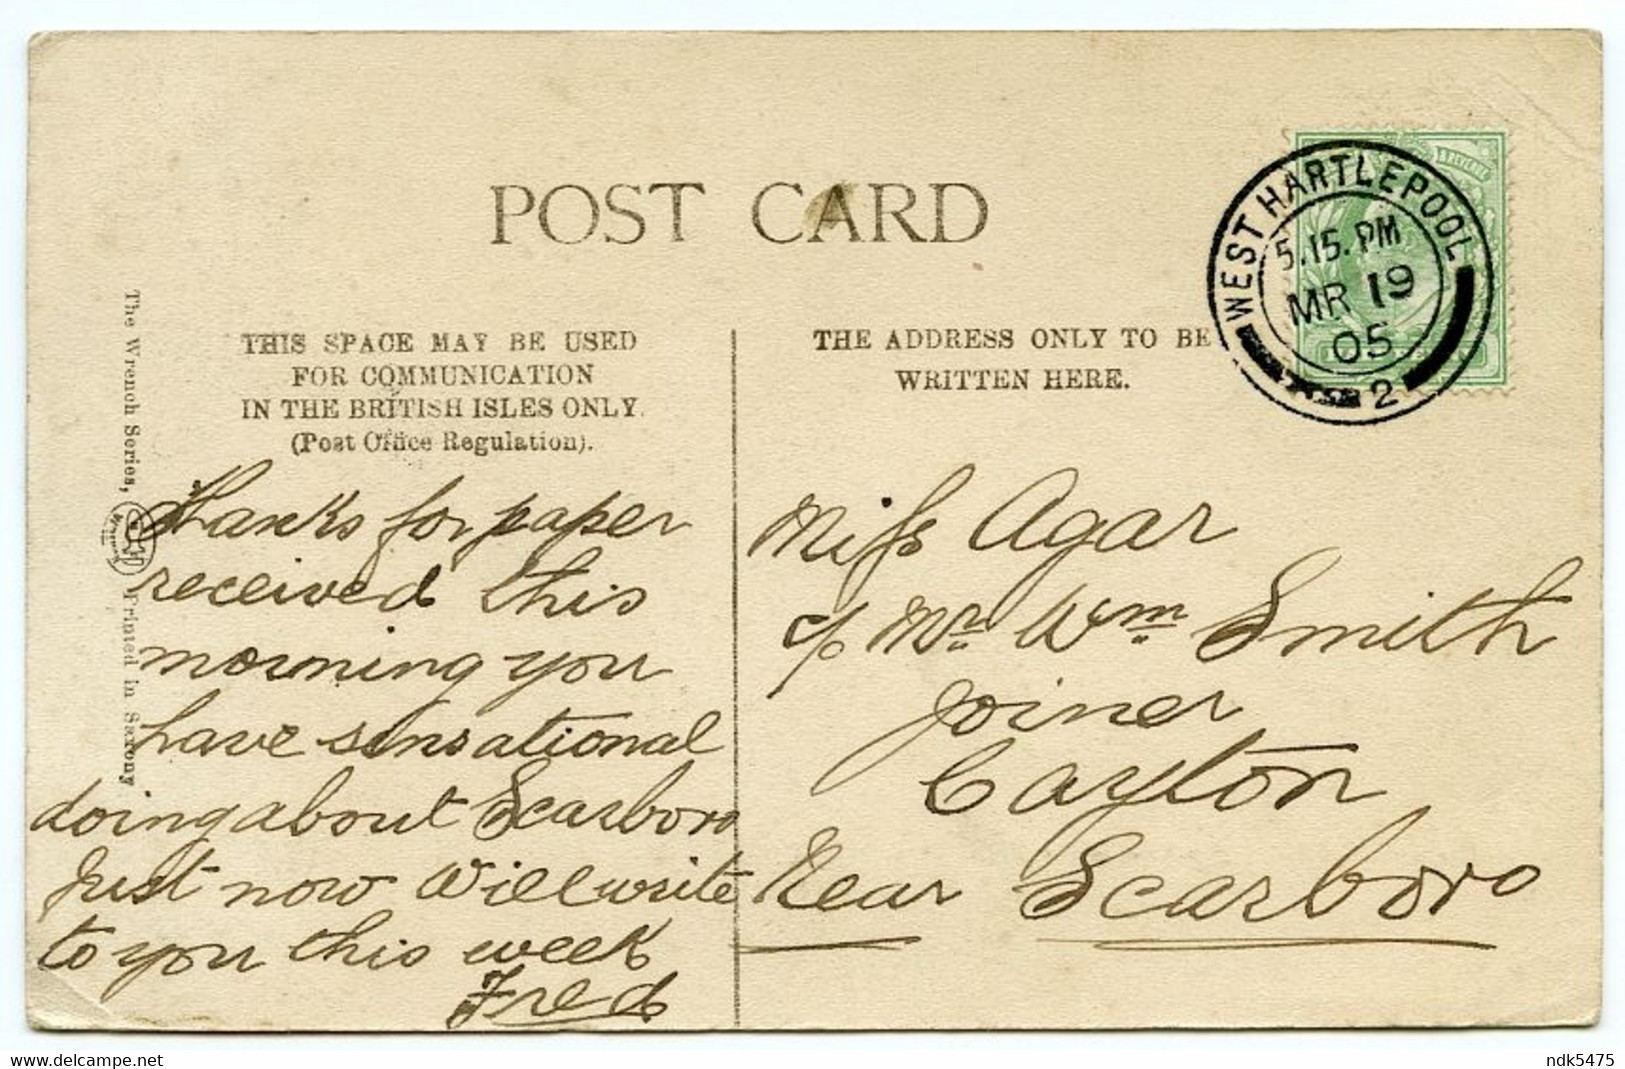 POST CARD
THIS SPACE MAY BE USED
FOR COMMUNICATION
IN THE BRITISH ISLES ONLY.
(Post Office Regulation).
THE ADDRESS ONLY TO BE
WRITTEN HERE.
WEST HARTLEPOOL
5.15.PM
MR 19
05
2
The Wrench Series,
Printed in Saxony
Thanks for paper
received this
morning you
have sensational
doing about Scarboro
Just now Will write
to you this week
Fred
Miss Agar
c/o Mr. Wm. Smith
Joiner
Cayton
Near Scarboro
delcampe.net
ndk5475